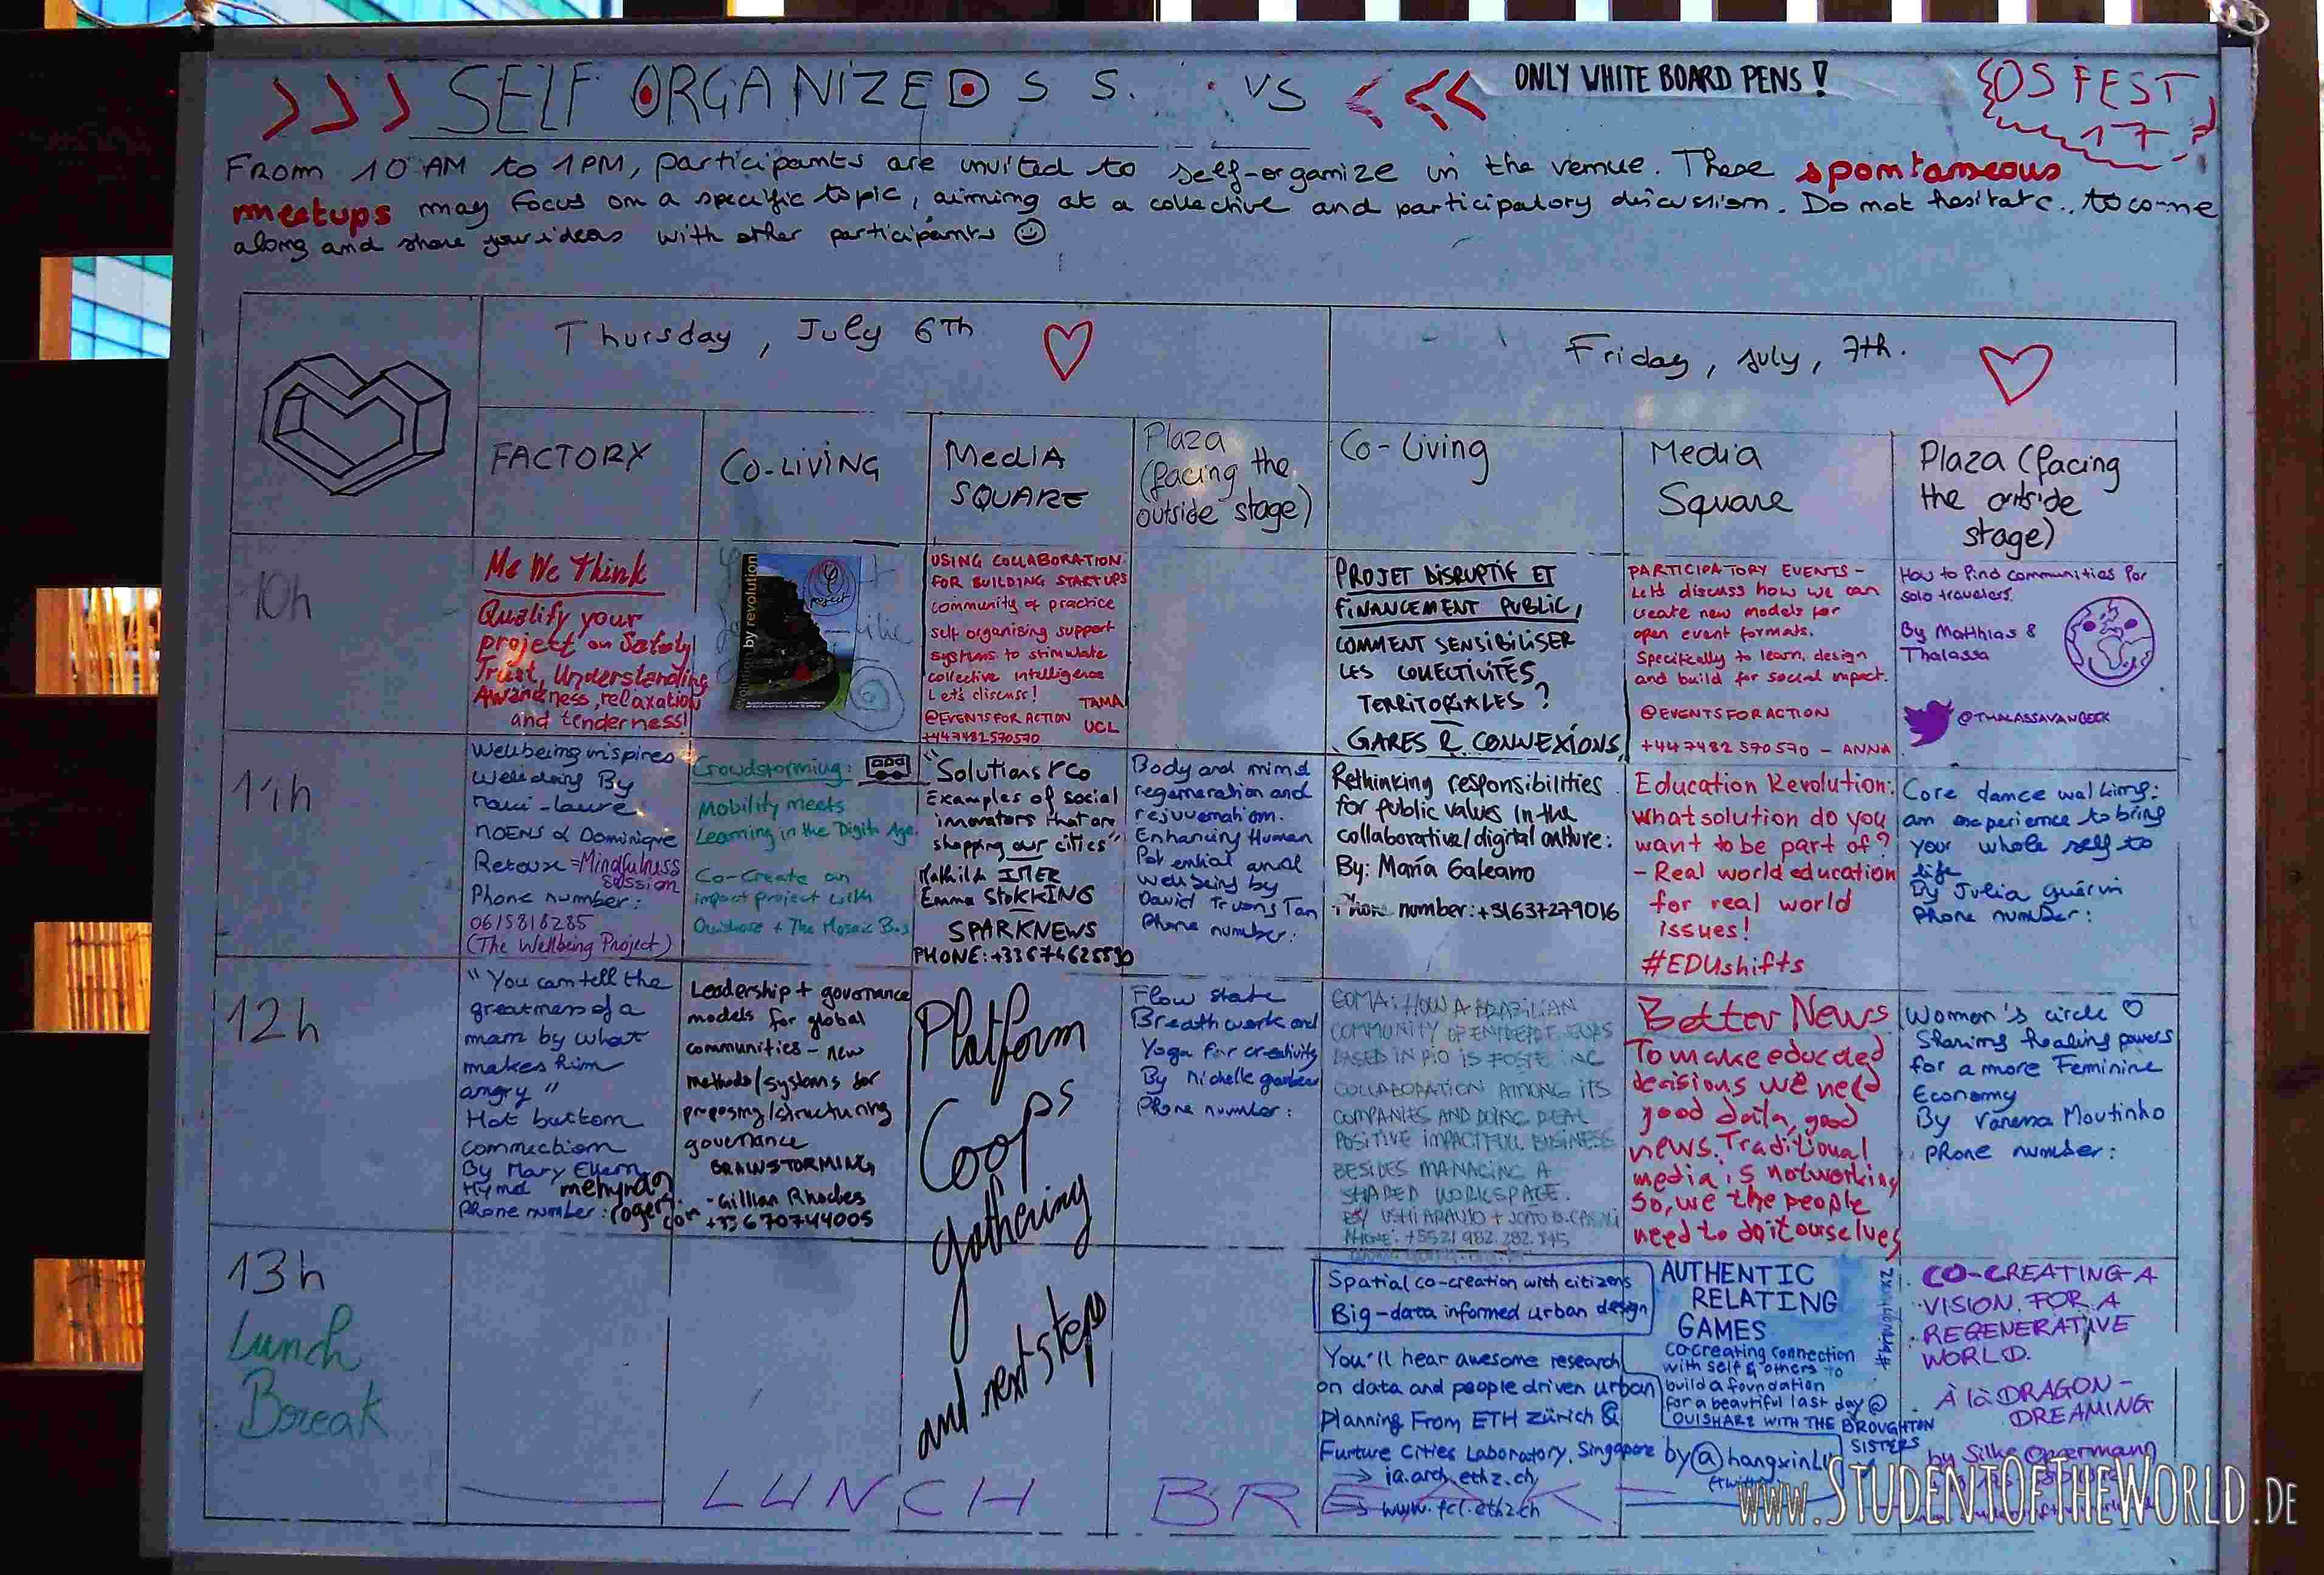 >>> SELF ORGANIZED S S. VS <<<
ONLY WHITE BOARD PENS!
OS FEST
17
From 10 AM to 1PM, participants are invited to self-organize in the venue. These spontaneous
meetups may focus on a specific topic, aiming at a collective and participatory discussion. Do not hesitate.. to come
along and share your ideas with other participants ☺
Thursday, July 6Th
Friday, July, 7th.
FACTORY
CO-LIVING
MEDIA
SQUARE
Plaza
(facing the
outside stage)
Co-Living
Media
Square
Plaza (facing
the outside
stage)
10h
Me We Think
Qualify your
project on Safety
Trust, Understanding
Awareness, relaxation
and tenderness!
by revolution
project
USING COLLABORATION
FOR BUILDING STARTUPS
community of practice
self organising support
systems to stimulate
collective intelligence
Let's discuss!
TAMA
@EVENTSFORACTION UCL
+447482570570
PROJET DISRUPTIF ET
FINANCEMENT PUBLIC,
COMMENT SENSIBILISER
LES COLLECTIVITÉS
TERRITORIALES ?
GARES & CONNEXIONS
PARTICIPATORY EVENTS -
Lets discuss how we can
create new models for
open event formats.
Specifically to learn, design
and build for social impact.
@EVENTSFORACTION
+447482 570570 - ANNA
How to find communities for
solo travelers.
By Matthias &
Thalassa
@THALASSAVANBEEK
11h
Wellbeing inspires
Welldoing By
NOENS & Dominique
Retoux = Mindfulness
Session
Phone number:
0615818285
(The Wellbeing Project)
Crowdstorming:
Mobility meets
Learning in the Digital Age
Co-Create an
impact project with
Ouishare + The Mosaic Bus
"Solutions & Co
Examples of social
innovators that are
shapping our cities"
Mathilde IMER
Emma STOKKING
SPARKNEWS
PHONE: +33674625590
Body and mind
regeneration and
rejuvenation.
Enhancing Human
Potential and
Wellbeing by
David Truong Tan
Phone number:
Rethinking responsibilities
for public values in the
collaborative/digital culture:
By: María Galeano
Phone number: +31637279016
Education Revolution:
What solution do you
want to be part of?
- Real world education
for real world
issues!
#EDUshifts
Core dance walking:
an experience to bring
your whole self to
life
By Julia Guérin
Phone number:
12h
"You can tell the
greatness of a
man by what
makes him
angry"
Hot button
connection
By Mary Ellen
Hynd
Phone number:
Leadership + governance
models for global
communities - new
methods/systems for
proposing/structuring
governance
BRAINSTORMING
- Gillian Rhodes
+33670744005
Platform
Coops
gathering
and next steps
Flow state
Breathwork and
Yoga for creativity
By Michelle
Phone number:
COMA: HOW A BRAZILIAN
COMMUNITY OF ENTREPRENEURS
BASED IN RIO IS FOSTERING
COLLABORATION AMONG ITS
COMPANIES AND DOING REAL
POSITIVE IMPACTFULL BUSINESS
BESIDES MANAGING A
SHARED WORKSPACE.
BY USHI ARAUJO + JOÃO B.
PHONE: +5521 982.282.
Better News
To make educated
decisions we need
good data, good
news. Traditional
media is not working
So, we the people
need to do it ourselves
Women's circle ♡
Sharing healing powers
for a more Feminine
Economy
By Vanena Moutinho
Phone number:
13h
Lunch
Break
LUNCH BREAK
Spatial co-creation with citizens
Big-data informed urban design
You'll hear awesome research
on data and people driven urban
planning From ETH Zürich &
Furture Cities Laboratory, Singapore
→ ia.arch.ethz.ch
→ www.fcl.ethz.ch
by @hangxinLu
AUTHENTIC
RELATING
GAMES
cocreating connection
with self & others to
build a foundation
for a beautiful last day @
OUISHARE WITH THE BROUGHTON
SISTERS
CO-CREATING A
VISION FOR A
REGENERATIVE
WORLD.
À la DRAGON-
DREAMING
by Silke Oppermann
www.STUDENTOFTHEWORLD.DE